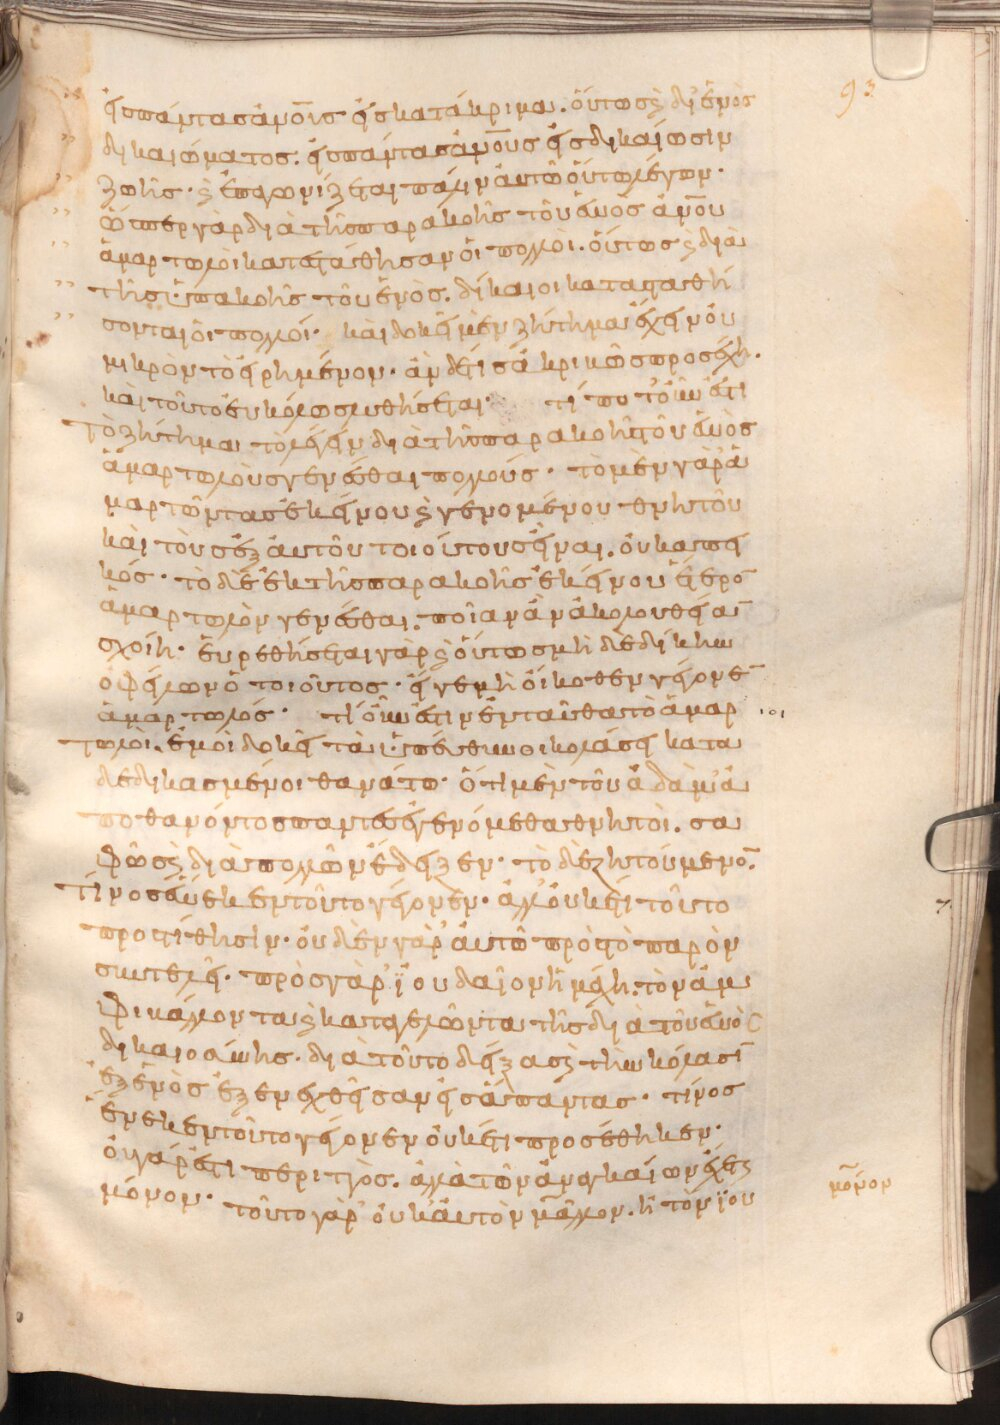 εἰς πάντας ἀνους εἰς κατάκριμα. οὕτως καὶ δι' ἑνὸς
δικαιώματος. εἰς πάντας ἀνους εἰς δικαίωσιν
ζωῆς. καὶ ἐπαγωνίζεται πάλιν αὐτῶ οὕτω λέγων.
ὥσπερ γὰρ διὰ τῆς παρακοῆς τοῦ ἑνὸς ἀνου
ἁμαρτωλοὶ κατεστάθησαν οἱ πολλοὶ. οὕτως καὶ διὰ
τῆς ὑπακοῆς τοῦ ἑνὸς. δίκαιοι κατασταθή
σονται οἱ πολλοί. καὶ δοκεῖ μὲν ζήτημα ἔχειν οὐ
μικρὸν τὸ εἰρημένον. ἂν δέ τις ἀκριβῶς προσέχη.
καὶ τοῦτο εὐκόλως λυθήσεται. τί ποτ' οὖν ἐστι
τὸ ζήτημα τὸ λέγειν διὰ τῆς παρακοῆς τοῦ ἑνὸς
ἁμαρτωλοὺς γενέσθαι πολλούς. τὸ μὲν γὰρ ἁ
μαρτόντος ἐκείνου καὶ γενομένου θνητοῦ
καὶ τοὺς ἐξ αὐτοῦ τοιούτους εἶναι. οὐκ ἀπει
κός. τὸ δὲ ἐκ τῆς παρακοῆς ἐκείνου ἕτερον
ἁμαρτωλὸν γενέσθαι. ποῖαν ἂν ἀκολουθείαν
σχοίη. εὑρεθήσεται γὰρ καὶ οὕτως μὴ δὲ δίκην
ὀφείλων ὁ τοιοῦτος. εἴ γε μὴ οἴκοθεν γέγονεν
ἁμαρτωλός. τί οὖν ἐστιν ἐνταῦθα τὸ ἁμαρ
τωλοί. ἐμοὶ δοκεῖ τὸ ὑπεύθυνοι κολάσει κατα
δεδικασμένοι θανάτω. ὅτι μὲν τοῦ ἀδὰμ ἀ
ποθανόντος πάντες ἐγενόμεθα θνητοὶ. σα
φῶς καὶ διὰ πολλῶν ἔδειξεν. τὸ δὲ ζητούμενον.
τίνος ἕνεκεν τοῦτο γέγονεν. ἀλλ' οὐκέτι τοῦτο
προστίθησιν. οὐδὲν γὰρ αὐτῶ πρὸς τὸ παρὸν
συντελεῖ. πρὸς γὰρ ἰουδαῖον ἡ μάχη. τὸν ἀμ
φιβάλλοντα καὶ καταγελῶντα τῆς διὰ τοῦ ἑνὸς
δικαιοσύνης. διὰ τοῦτο δείξας καὶ τὴν κόλασιν
ἐξ ἑνὸς ἐξενεχθεῖσαν εἰς ἅπαντας. τίνος
ἕνεκεν τοῦτο γέγονεν οὐκέτι προσέθηκεν.
οὐ γάρ ἐστι περιττὸς. ἀλλὰ τῶν ἀναγκαίων ἔχεται
μόνον. τοῦτο γὰρ οὐκ αὐτὸν μᾶλλον. ἢ τὸν ἰου
μόνον
93